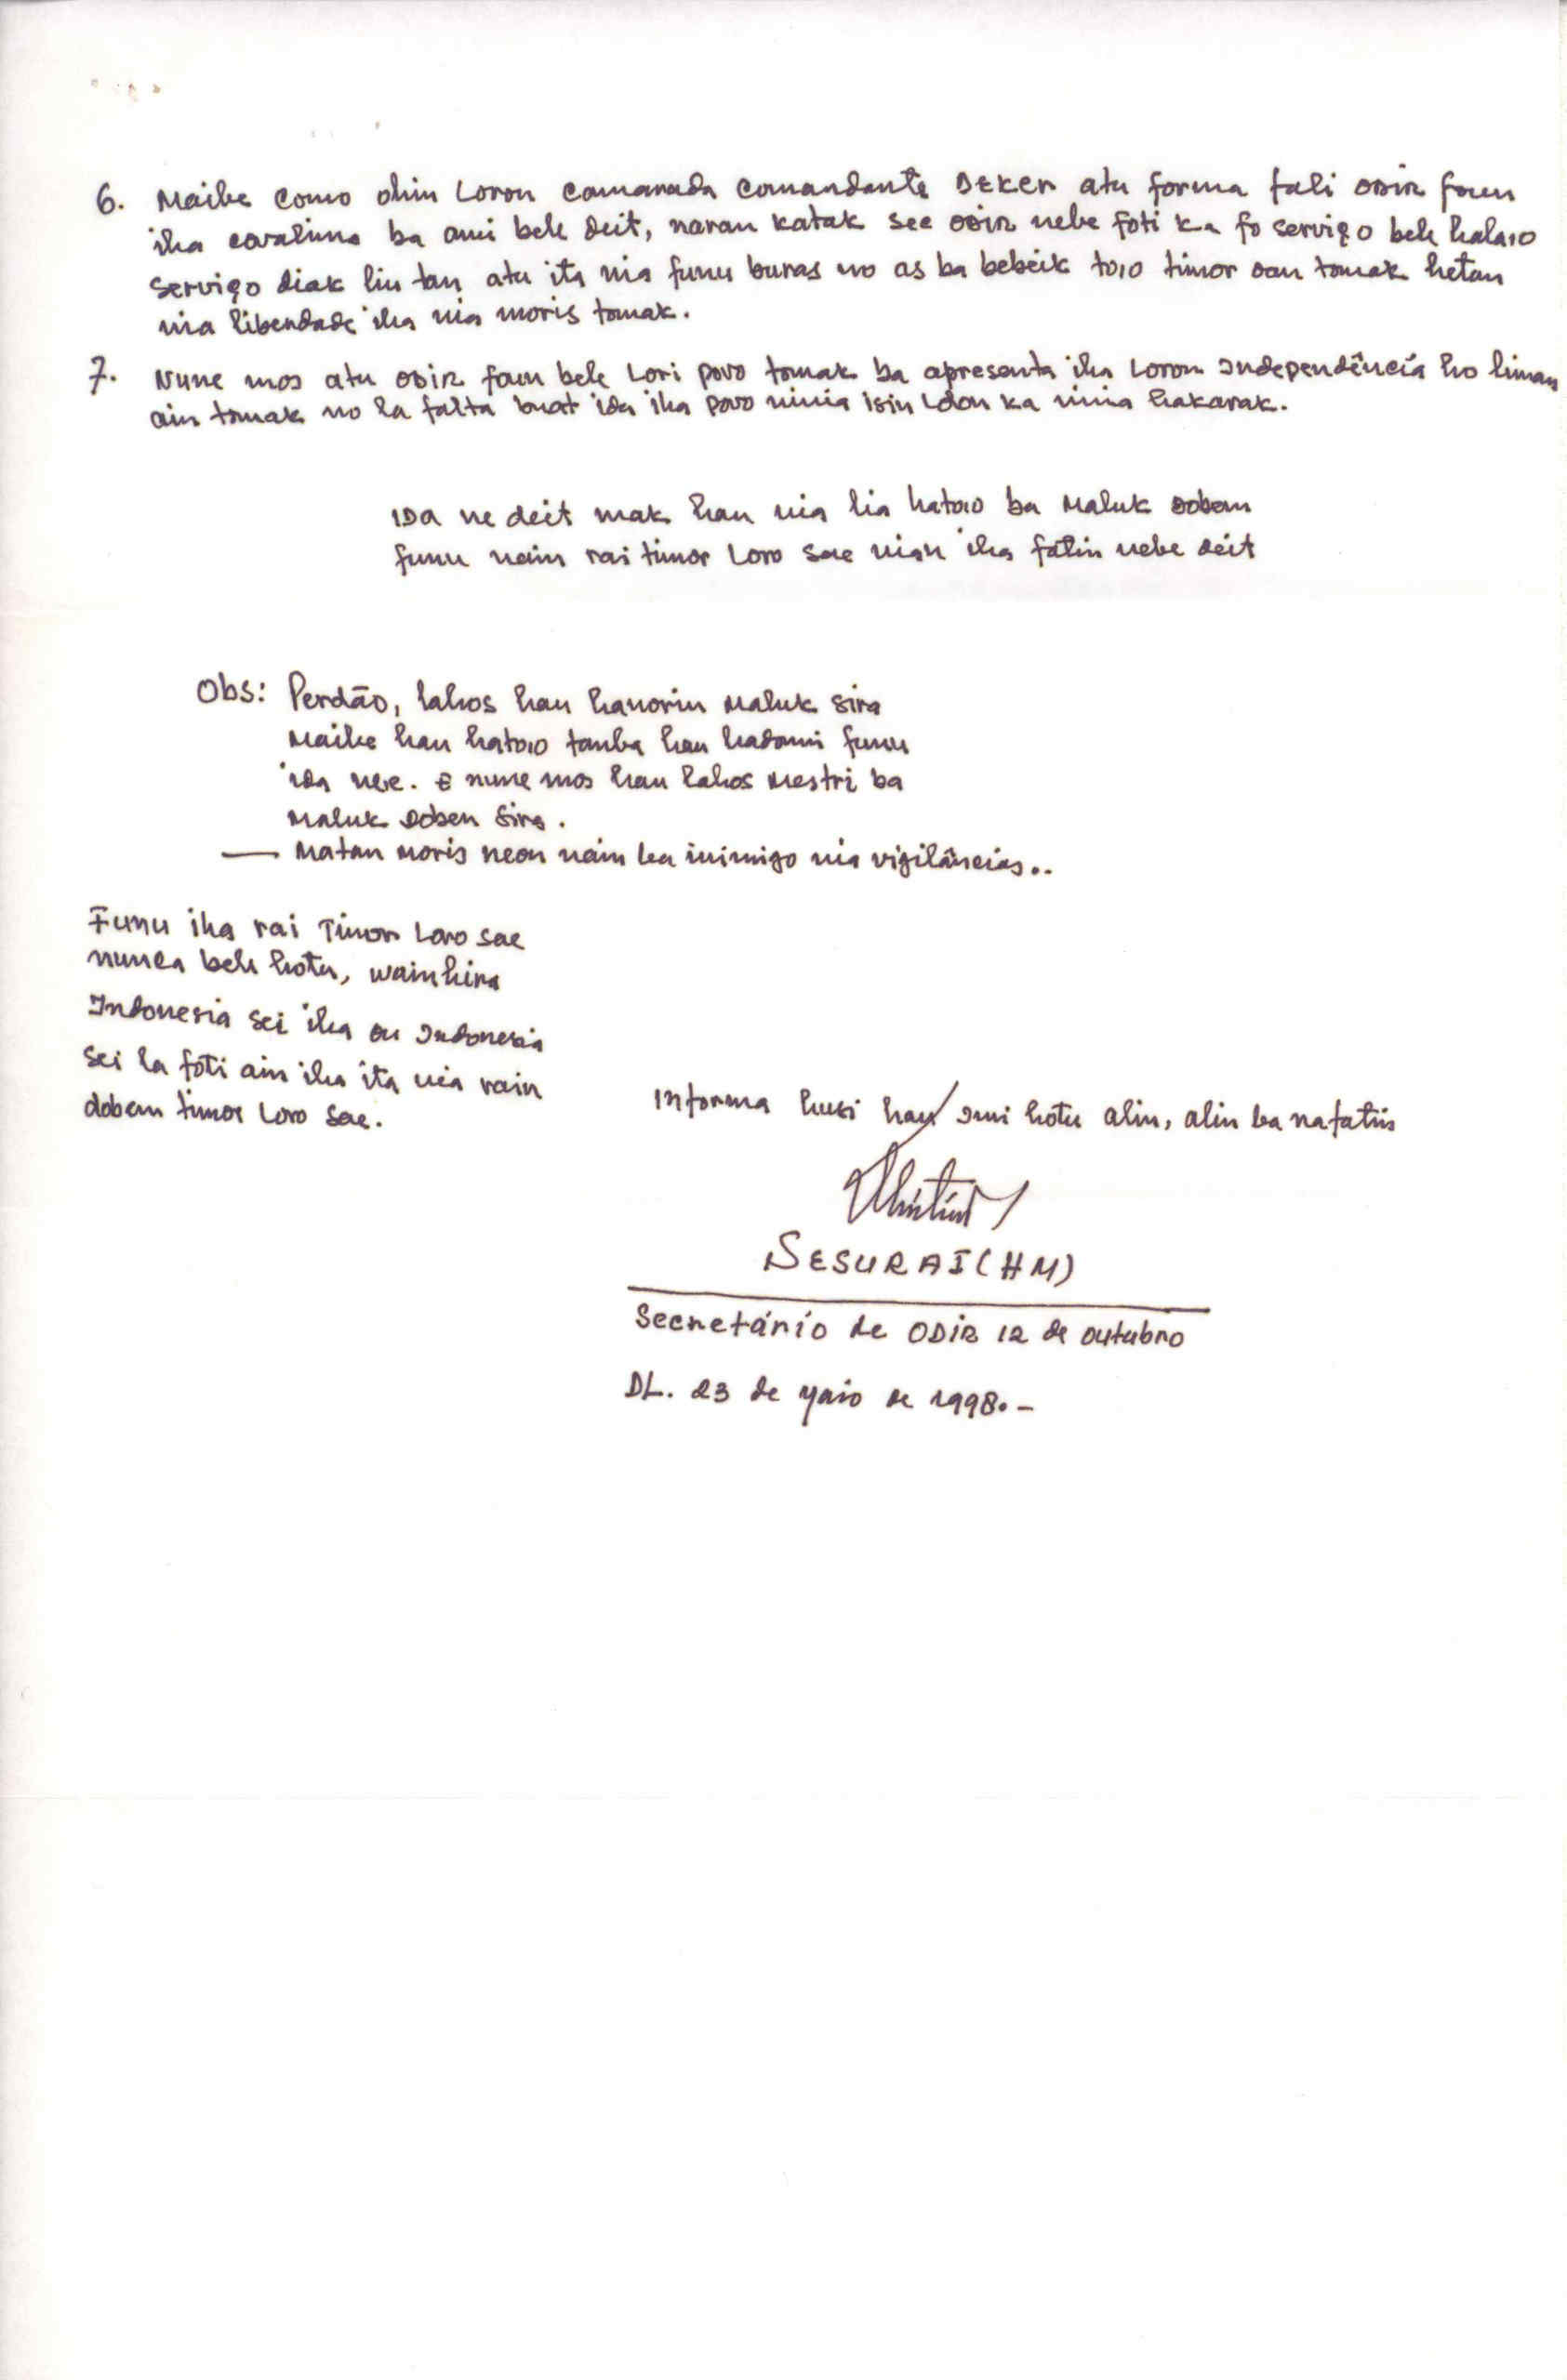 6. Maibe como ohin Loron camarada comandante DEKER atu forma fali ODIR foun
iha covalima ba ami bele deit, naran katak see ODIR nebe foti ka fo serviço bele halaio
serviço diak liu tan atu ita nia funu buras no as ba bebeik toio timor oan tomak hetan
nia liberdade iha nia moris tomak.
7. Nune mos atu ODIR foun bele Lori povo tomak ba apresenta iha Loron Independência ho liman
ain tomak no la falta buat ida iha povo ninia isin Lolon ka ninia hakarak.
IDa ne deit mak hau nia lia hatoio ba Maluk Doben
funu nain rai timor Loro sae nian iha fatin nebe deit
Obs: Perdão, lahos hau hanorin Maluk sira
Maibe hau hatoio tanba hau hadomi funu
ida nee. E nune mos hau lahos Mestri ba
Maluk Doben sira.
— Matan Moris neon nain ba inimigo nia vigilâncias..
Funu iha rai Timor Loro sae
nunca bele hotu, wainhira
Indonesia sei iha ou Indonesia
sei la foti ain iha ita nia rain
doben timor Loro sae.
Informa husi hau/ Imi hotu alin, alin ba nafatiis
SESURAI (HM)
Secretário de ODIR 12 de outubro
DL. 23 de Maio de 1998.-